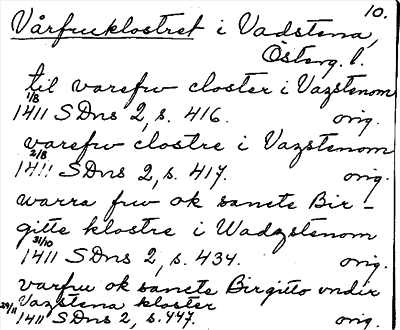 10.
Vårfruklostret i Vadstena,
Österg. l.
til varefrv closter i Vazstenom
1/8
1411 SDns 2, s. 416. orig.
varefrv clostre i Vazstenom
2/8
1411 SDns 2, s. 417. orig.
warra frw ok sancte Bir-
gitte klostre i Wadzstenom
31/10
1411 SDns 2, s. 434. orig.
varfru ok sancte Birgitto vndir
Vazstena kloster
29/11 1411 SDns 2, s. 447. orig.